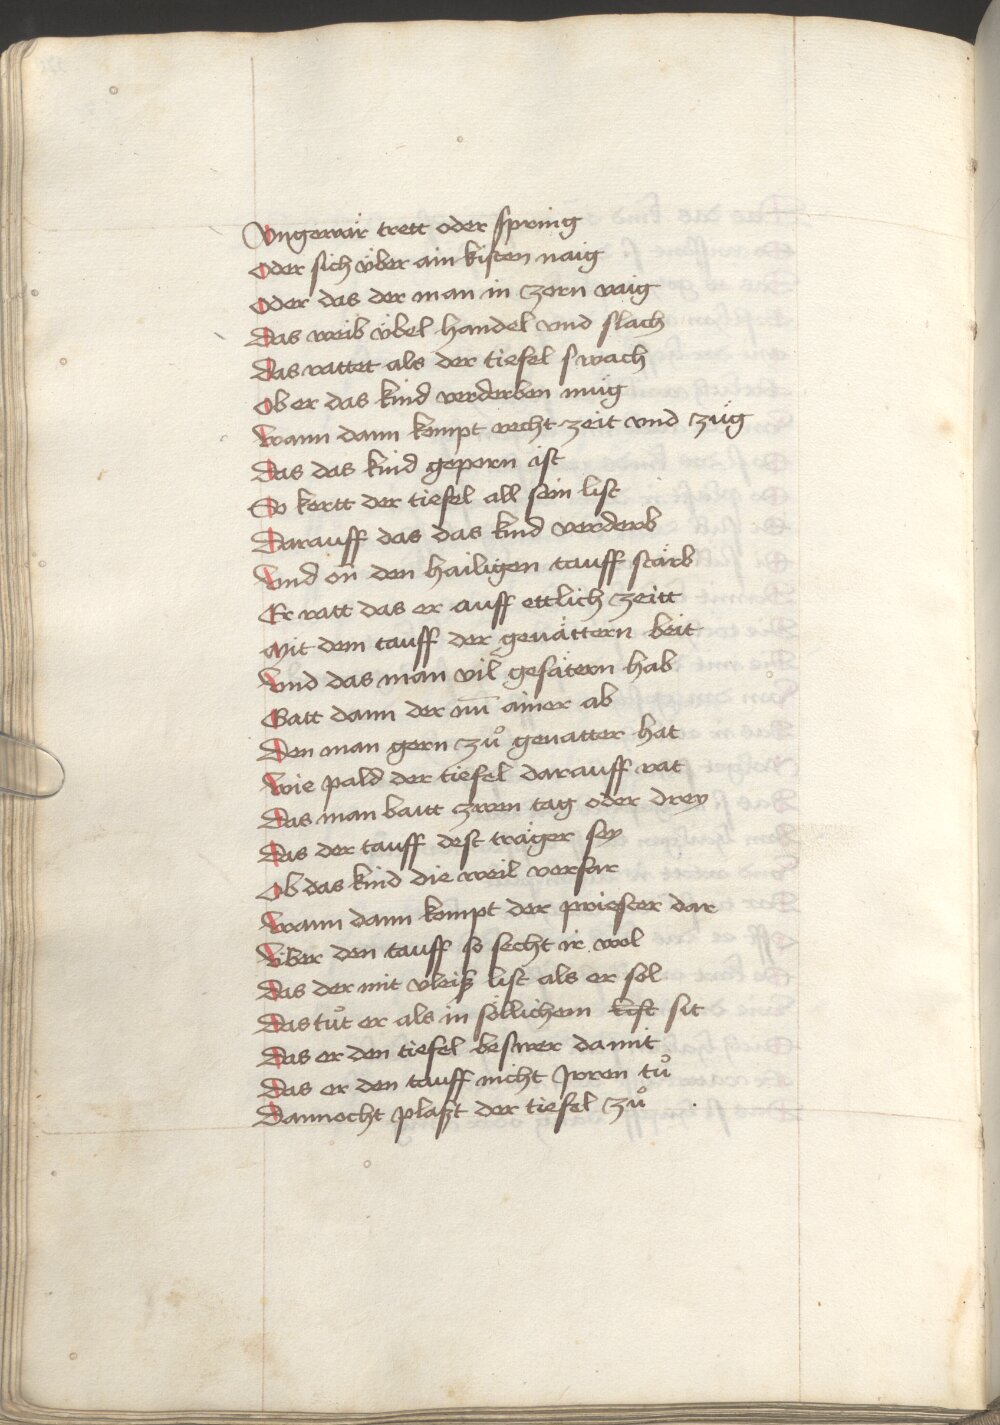 Vngewär trett oder spring
Oder sich v̈ber ain kisten naig
Oder das der man in zorn vaig
Das weib v̈bel handel vnd slach
Das rattet als der tiefel swach
Ob er das kind verderben müg
Wann dann kompt recht zeit vnd züg
Das das kind geporn ist
So kertt der tiefel all sein list
Darauff das das kind verderb
Vnd on̄ den hailigen tauff stärb
Er ratt das er auff ettlich zeitt
Mit dem tauff der geuättern beit
Vnd das man vil gefätern hab
Gatt dann der nū ainer ab
Den man gern zů geuatter hat
Wie pald der tiefel darauff rat
Das man baitt zwen tag oder drey
Das der tauff dest träger sey
Ob das kind die weil verfar
Wann dann kompt der priester dar
V̈ber den tauff so secht ir wol
Das der mit vleiß list als er sol
Das tůt er als in söllichem list sit
Das er den tiefel beswer damit
Das er den tauff nicht Jrren tů
Dannocht plaßt der tiefel zů